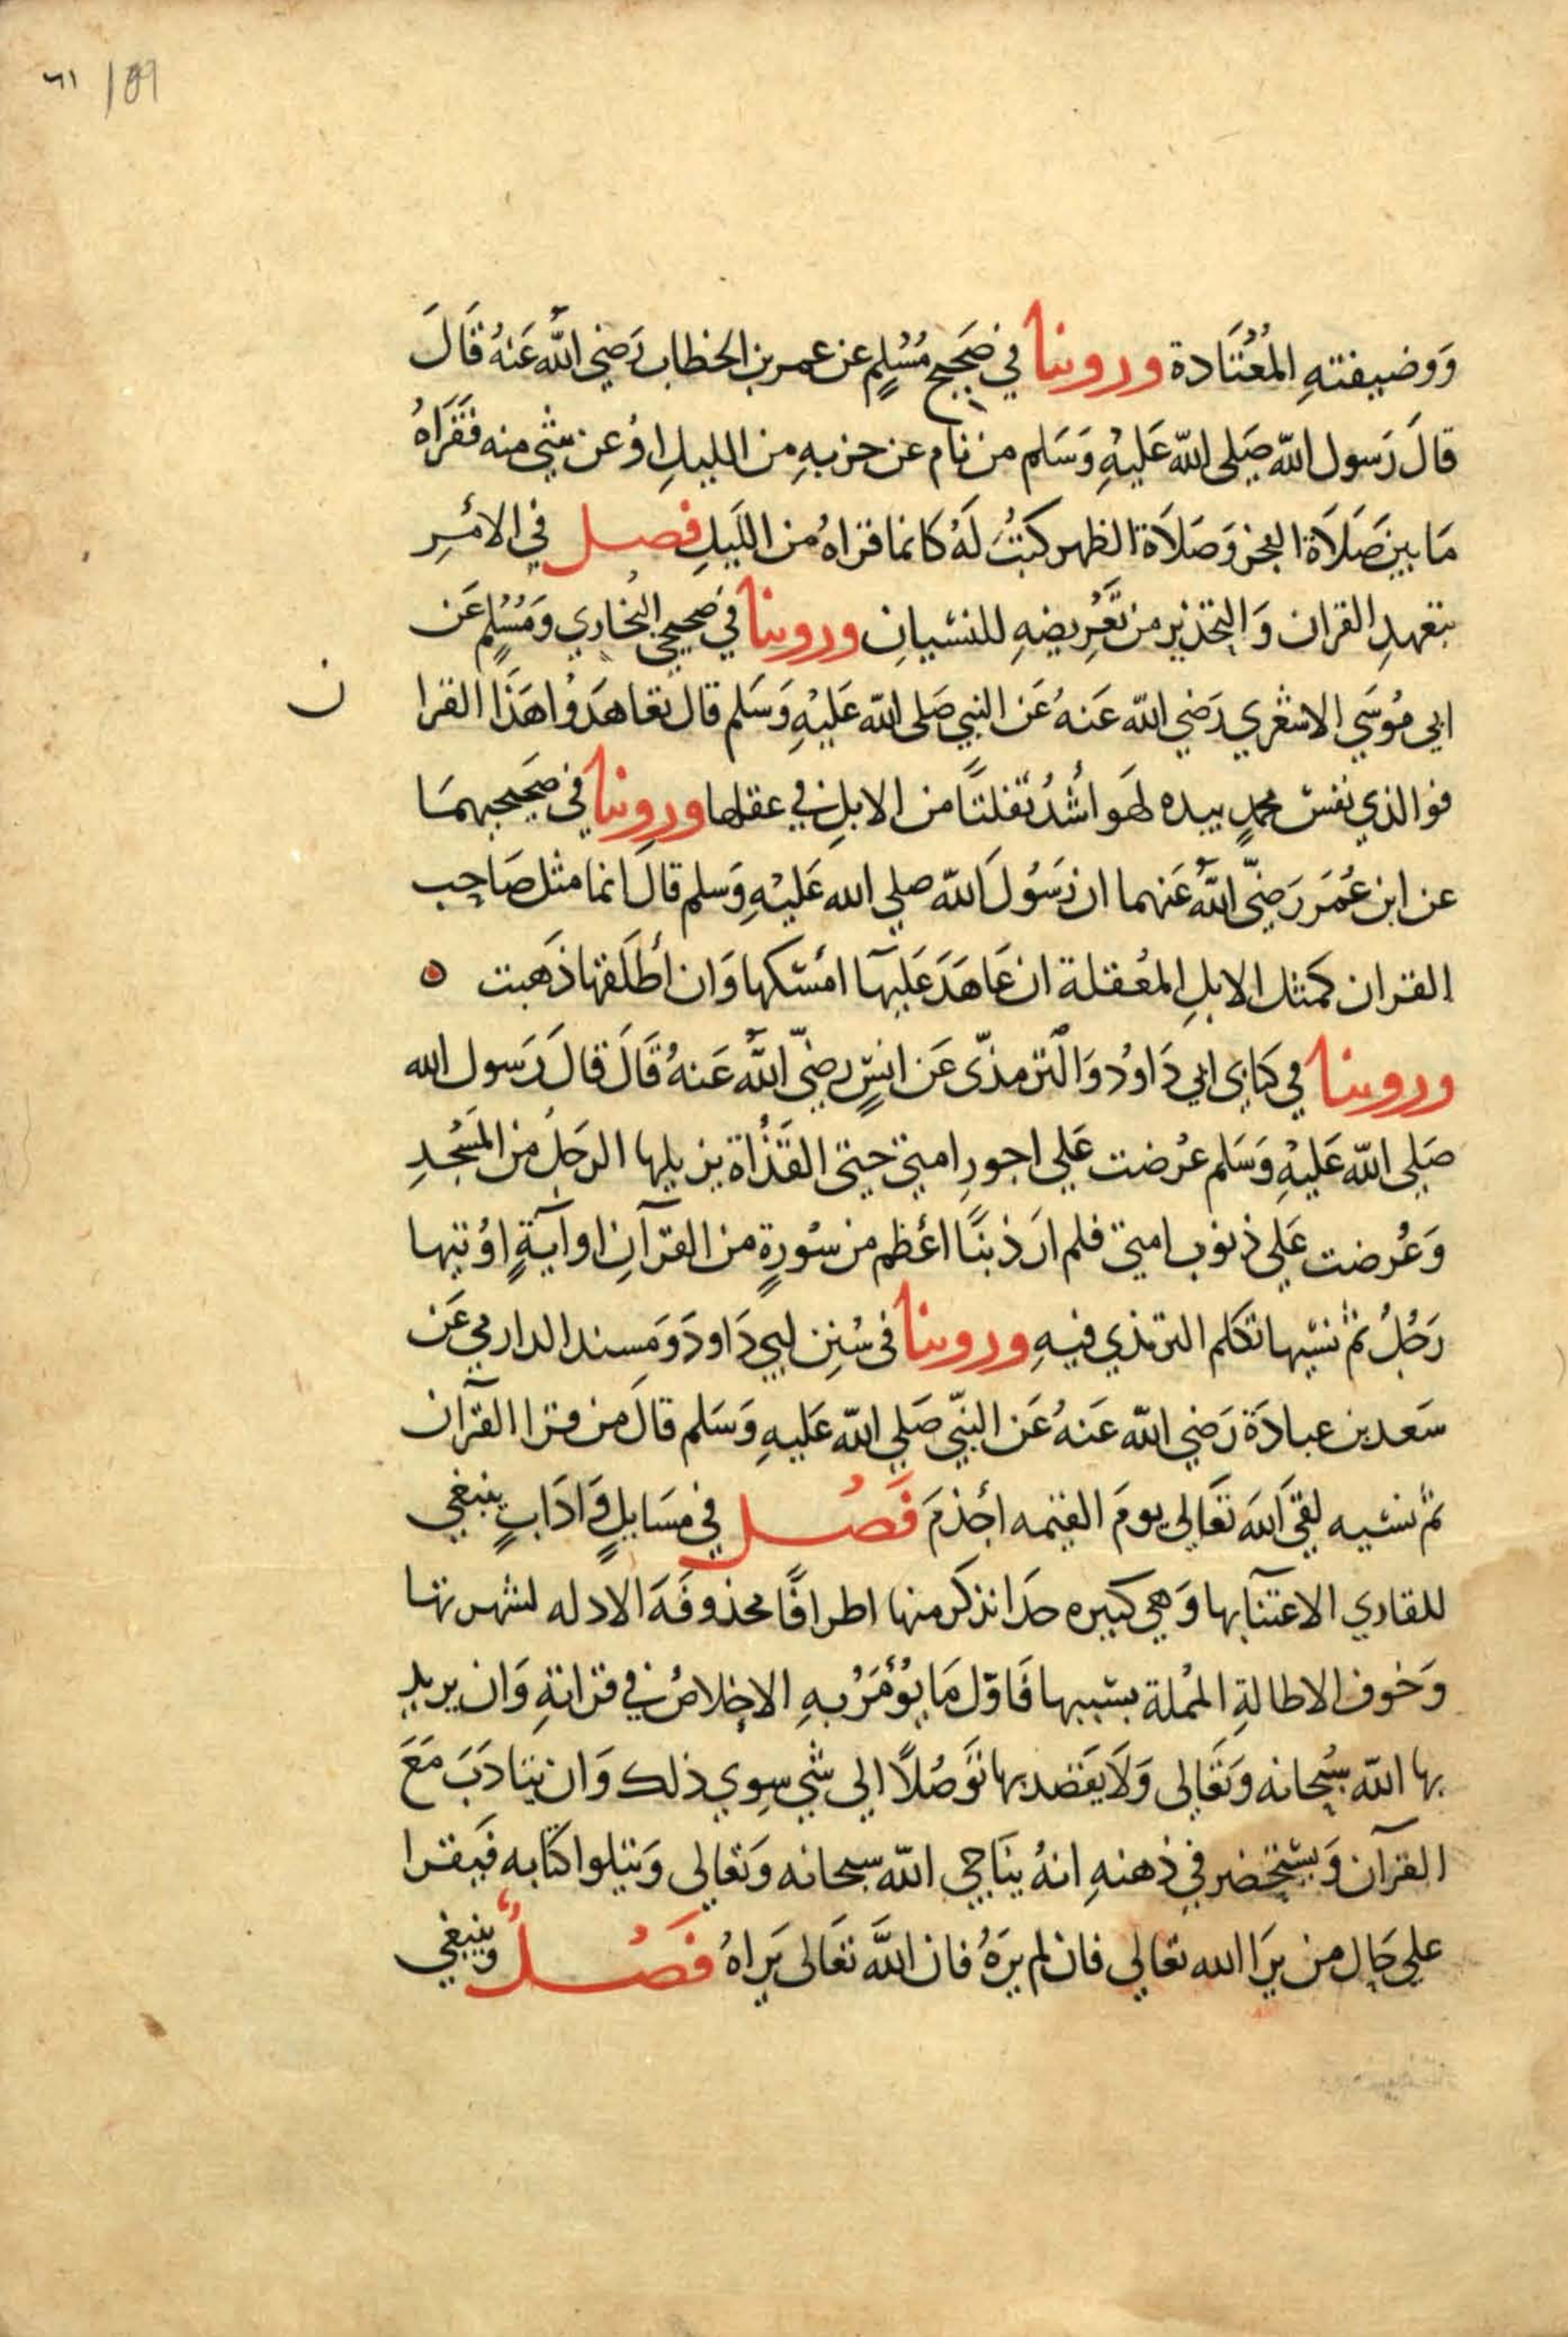 ٦١ 109
وَوضيفتهِ المُعْتَادة ورويْنا في صَحيح مُسْلِم عن عمر بن الخطاب رَضي اللهُ عَنهُ قَالَ
قالَ رَسول اللّه صَلى اللّه عَليهِ وَسَلم من نام عن حزبهِ من الليلِ اوْ عن شي منه فَقَرَاهُ
مَا بين صَلَاة الفجر وَصَلَاة الظهر كُتبَ لَهُ كانما قراهُ من اللَيلِ فصل في الأمْرِ
بتعهدِ القران وَالتحذير من تَعْرِيضهِ للنسْيانِ وروينا في صحيحي البُخاري وَمُسْلِم عَن
ابي مُوسَي الاشعْري رَضي اللّه عَنهُ عَن النبي صَلى اللّه عَليْهِ وَسَلم قال تعَاهَدُوا هَذَا القرا
ن
فوالذي نفسُ محمدٍ بيده لهَو أشدُ تفَلتًا من الابلِ في عقلها وروينا في صَحيحيهمَا
عن ابن عُمَر رَضيَّ اللّهُ عَنهما ان رَسُولَ اللّه صلي الله عَليْهِ وَسلم قالَ انما مثل صَاحِب
القران كمثل الابلِ المعُقلة ان عَاهَدَ عَليهَا امْسَكها وَان أطلَقها ذَهبت ه
وروينا في كتابي ابي دَاوُد وَالترمذيّ عَن انسٍ رضيَّ اللّهُ عَنهُ قَالَ قالَ رَسول الله
صَلي اللّه عَليْهِ وَسَلم عُرضت عَلي اجورِ امتي حتى القَذَاة يزيلها الرجَل من المَسْجدِ
وَعُرضت عَلي ذنوب امتي فلم ارَ ذنبًا أعْظم من سُورةٍ من القرآنِ او آيةٍ اوُتيها
رَجُلُ ثم نسْيها تكلم الترمذي فيهِ وروينا في سُنن ابي دَاودَ وَمسند الدارمي عَن
سَعد بن عبادَة رَضي اللّه عَنهُ عَن النبيّ صَلي اللّه عَليهِ وَسَلم قالَ من قرا القرآن
ثم نسْيه لقيَ اللهَ تعَالي يومَ القيمه أجْذمَ فَصُل في مسَايلٍ وَادَابٍ ينبغي
للقاري الاعتنآبها وَهي كبيره جدَا نذكر منها اطرافًا محذوفَة الادله لشهرتها
وَخوف الاطالةِ المُملة بسَببها فَاوّل مَا يُؤمَرُ بهِ الاخلاصُ في قرَانةِ وَان يريد
بها اللّه سُبحانه وَتعَالى وَلَا يَقصد بها توَصُلًا الى شي سِوي ذلك وَان يتادَبَ مَعَ
القرآن وَيستحْضر في ذهنهِ انهُ يناجي اللّه سبحانه وَتعَالي وَيتلوا كتابه فَيقرا
علي حَال من يرَا الله تعالي فان لم يرَهُ فان اللَّه تعَالى يَراهُ فصُلُ وينبغي